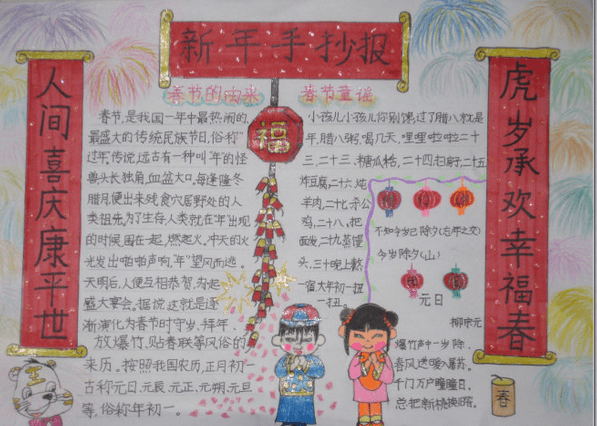 新年手抄报
人间喜庆康平世
虎岁承欢幸福春
春节的由来
春节，是我国一年中最热闹的，
最盛大的传统民族节日，俗称“
过年，传说，远古有一种叫‘年’的怪
兽头长独角，血盆大口。每逢隆冬
腊月，便出来残食穴居野处的人
类祖先。为了生存，人类就在‘年’出现
的时候，围在一起，燃起火。冲天的火
光发出啪啪声响，‘年’望风而逃。
天明后，人便互相恭贺，为起
盛大宴会。据说这就是逐
渐演化为春节时守岁、拜年、
放爆竹、贴春联等风俗的
来历。按照我国农历，正月初一
古称元日、元辰、元正、元朔、元旦
等，俗称年初一。
福
春节童谣
小孩儿小孩儿你别馋，过了腊八就是
年，腊八粥，喝几天，哩哩啦啦二十
三，二十三，糖瓜粘，二十四扫房，二十五
炸豆腐，二十六，炖
羊肉，二十七，杀公
鸡，二十八，把
面发，二十九，蒸馒
头，三十晚上熬
一宿大年初一扭
一扭。
不知今岁已除夕(去年之交)
今岁除夕(山)
元日
柳宗元
爆竹声中一岁除，
春风送暖入屠苏。
千门万户曈曈日，
总把新桃换旧符。
王
春